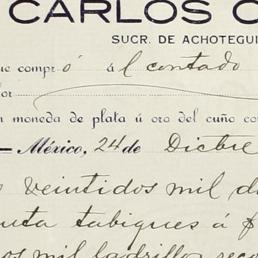 CARLOS C
SUCR. DE ACHOTEGUI
ue compró á al contado
or
n moneda de plata ú oro del cuño co
México, 24 de Dicbre
o veintidos mil d
uta tabiques á $
os mil ladrillos reco